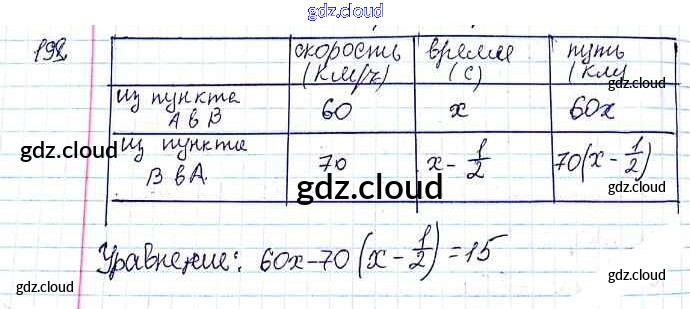 gdz.cloud
198
скорость (км/ч) время (с) путь (км
gdz.cloud
из пункта А в В 60 x 60x
gdz.cloud
из пункта В в А. 70 x - 1/2 70(x - 1/2)
gdz.cloud
gdz.cloud
Уравнение: 60x-70(x - 1/2)=15
gdz.cloud
gdz.cloud